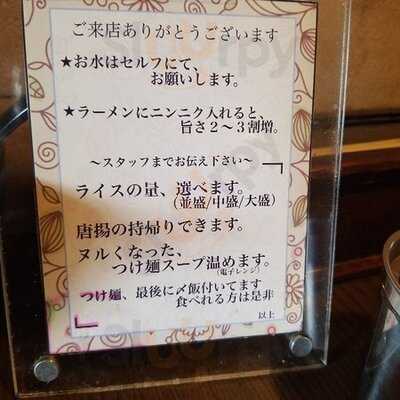 ご来店ありがとうございます
★お水はセルフにて、
お願いします。
★ラーメンにニンニク入れると、
旨さ2～3割増。
～スタッフまでお伝え下さい～
ライスの量、選べます。
(並盛/中盛/大盛)
唐揚の持帰りできます。
ヌルくなった、
つけ麺スープ温めます。
(電子レンジ)
つけ麺、最後に〆飯付いてます
食べれる方は是非
以上